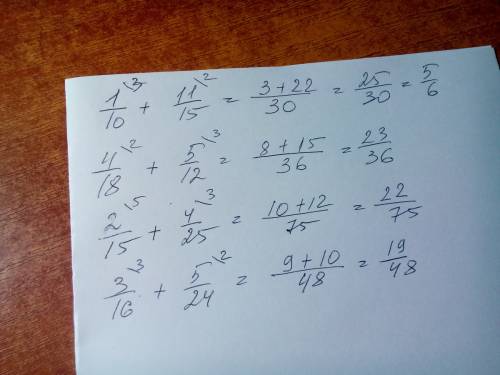 1/10 \3 + 11/15 \2 = 3+22/30 = 25/30 = 5/6
4/18 \2 + 5/12 \3 = 8+15/36 = 23/36
2/15 \5 + 4/25 \3 = 10+12/75 = 22/75
3/16 \3 + 5/24 \2 = 9+10/48 = 19/48